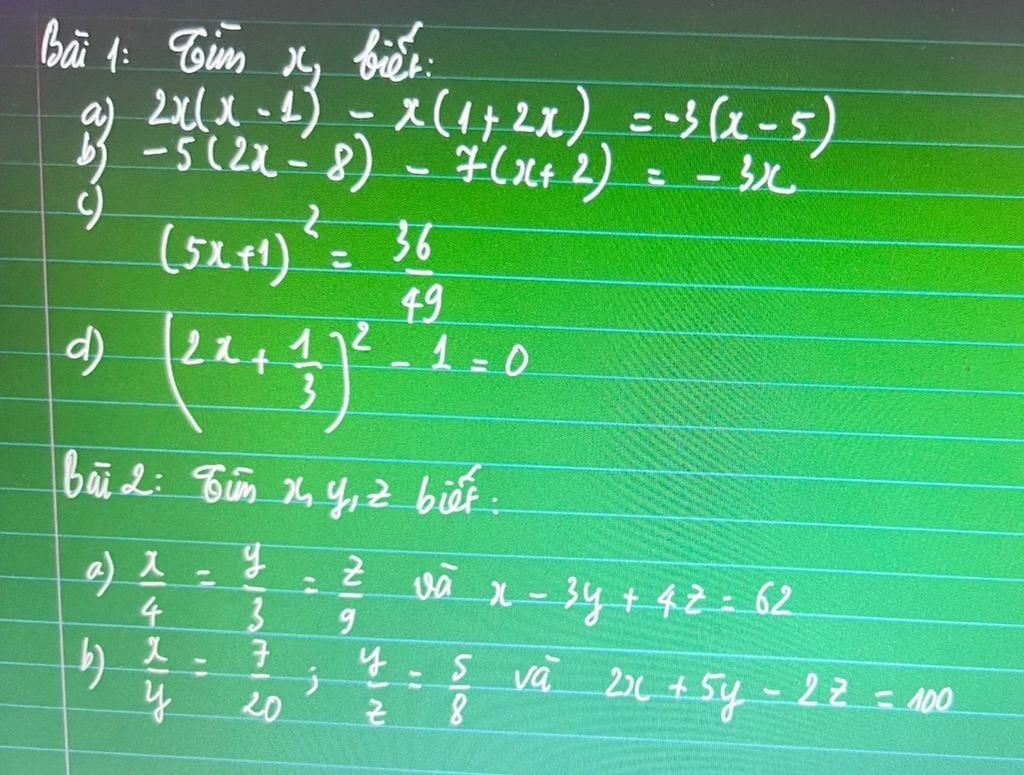 Bài 1: Tìm x, biết:
a) 2x(x - 1) - x(1 + 2x) = -3(x - 5)
b) -5(2x - 8) - 7(x + 2) = - 3x
c)
(5x+1)² = 36/49
d) (2x + 1/3)² - 1 = 0
Bài 2: Tìm x, y, z biết:
a) x/4 = y/3 = z/9 và x - 3y + 4z = 62
b) x/y = 7/20 ; y/z = 5/8 và 2x + 5y - 2z = 100